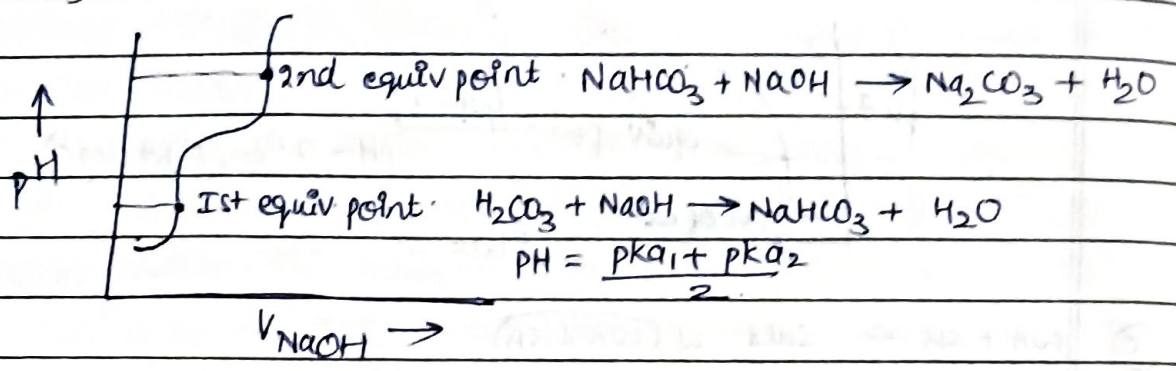 2nd equiv point. NaHCO₃ + NaOH → Na₂CO₃ + H₂O
↑
pH
Ist equiv point. H₂CO₃ + NaOH → NaHCO₃ + H₂O
PH = pka₁ + pka₂ / 2
V NaOH →